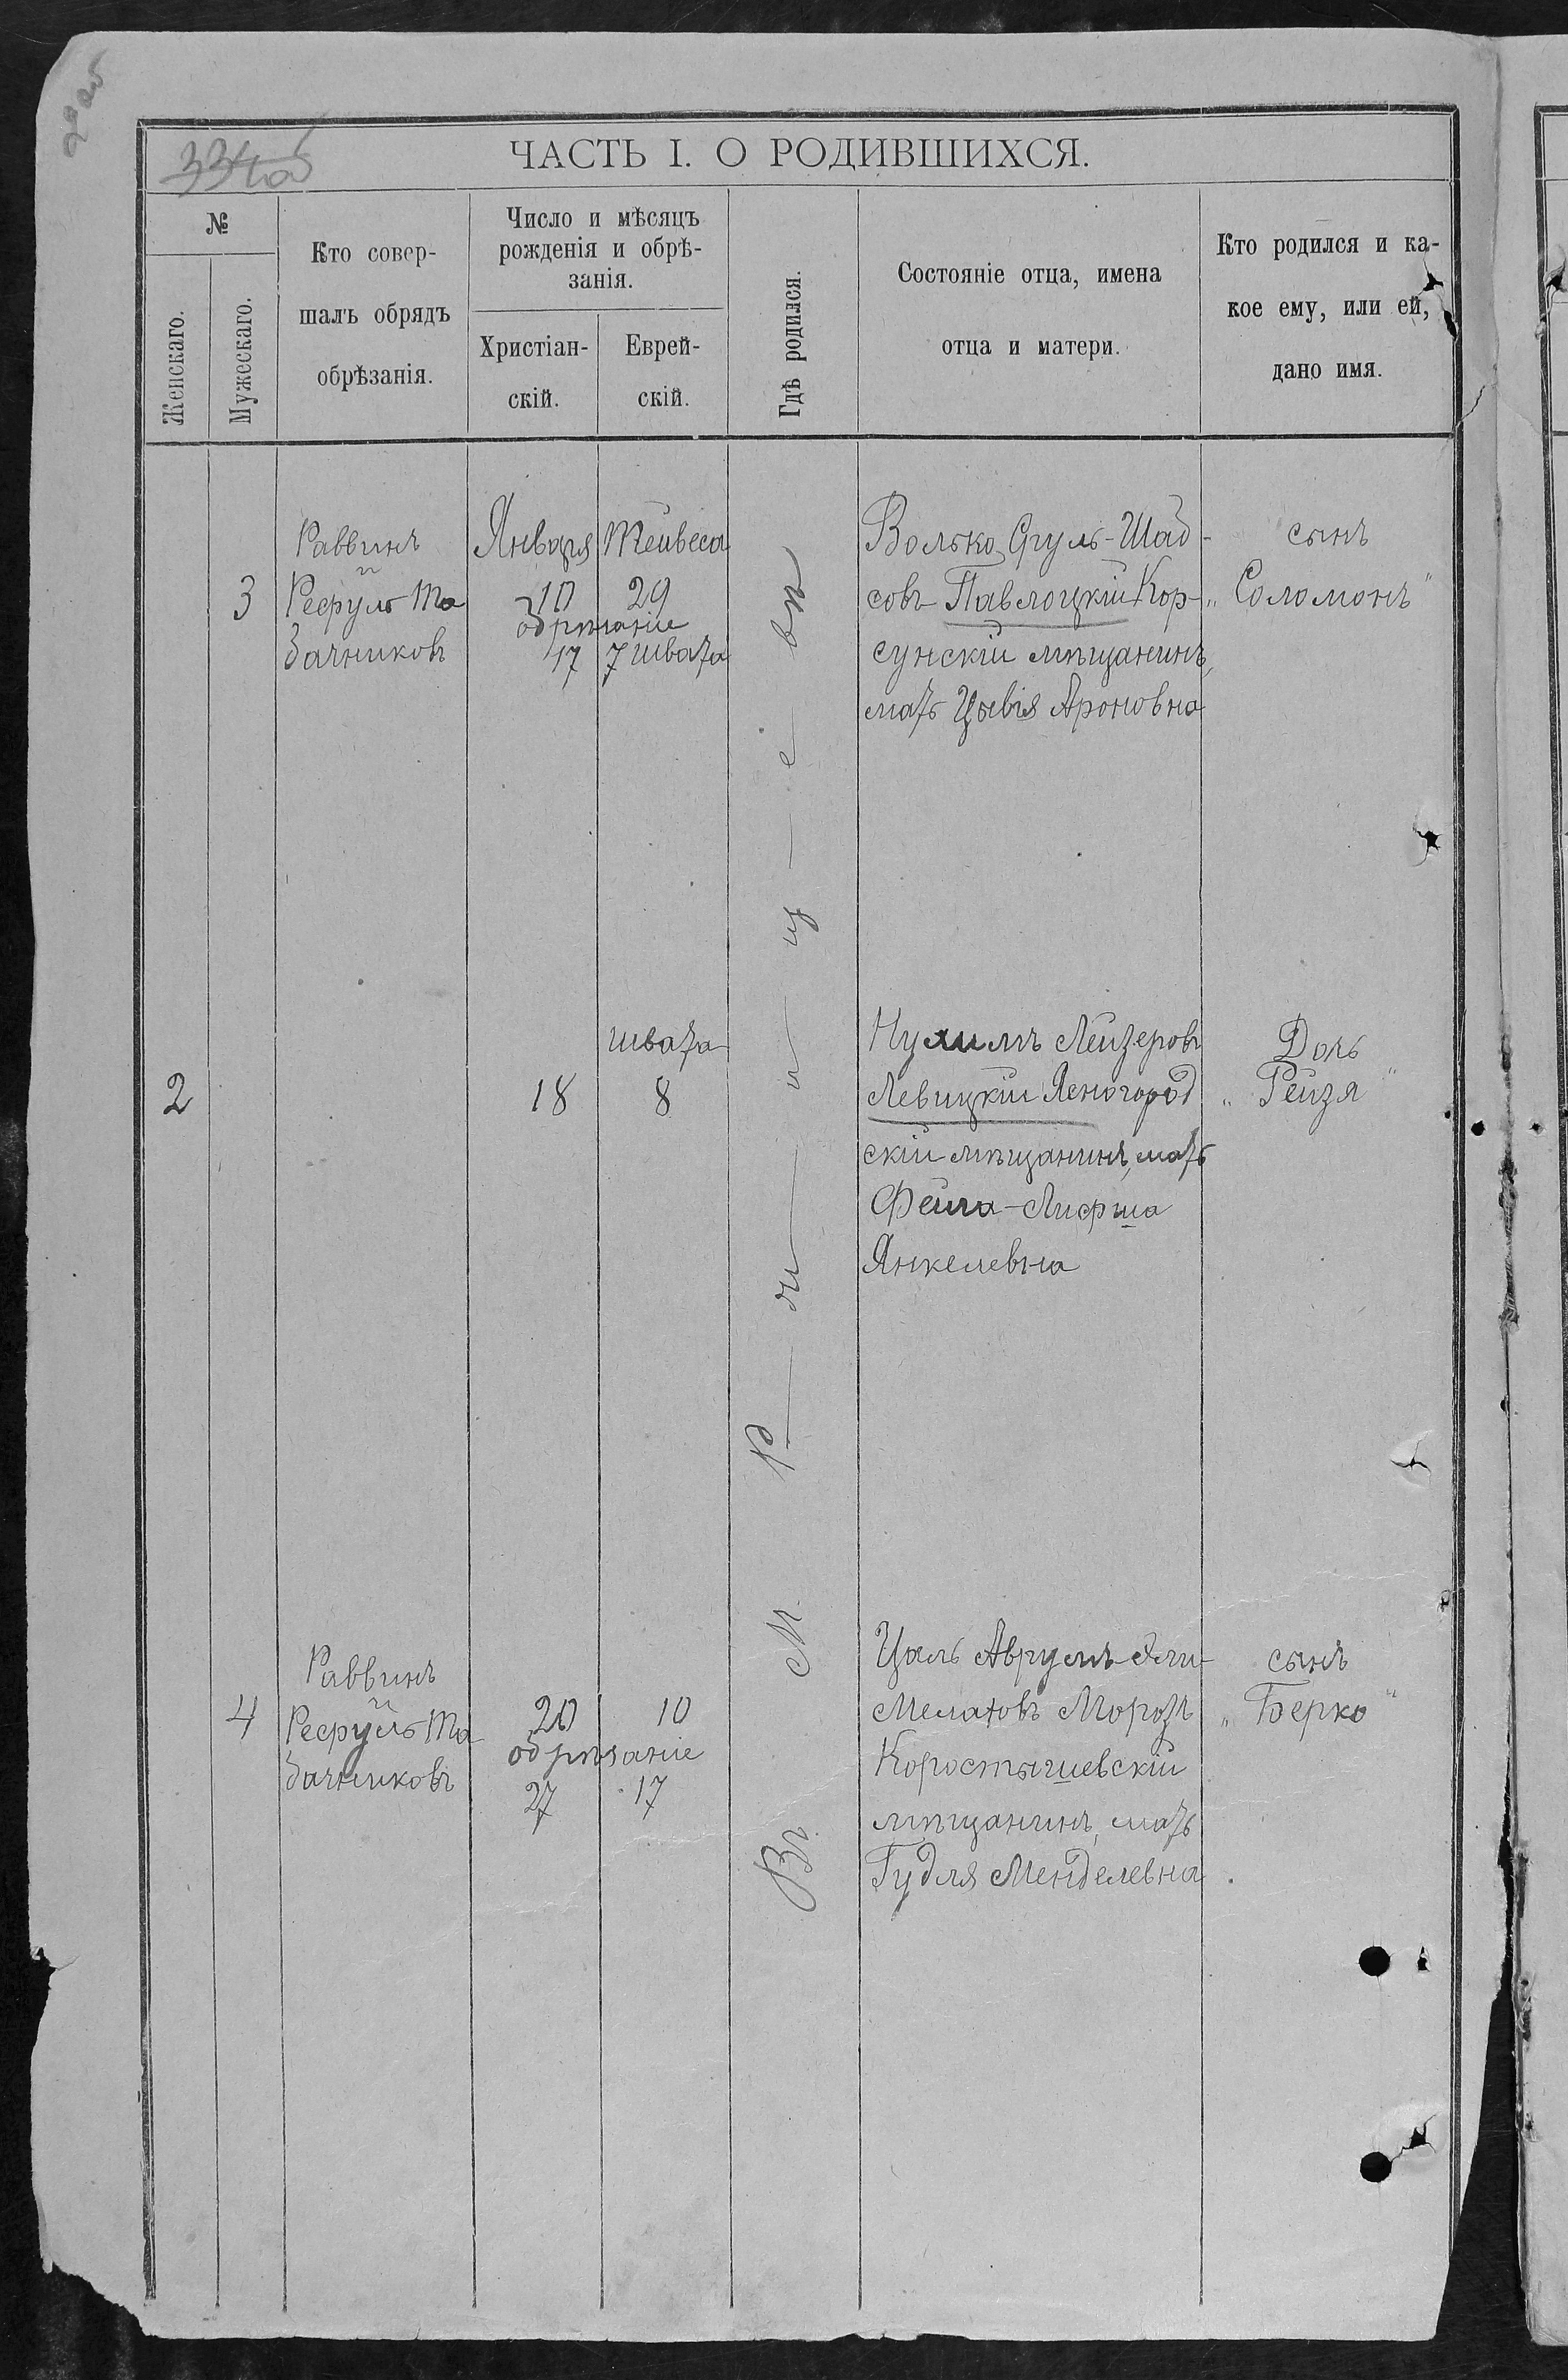 ЧАСТЬ I. О РОДИВШИХСЯ.
№
Женскаго.
Мужескаго.
Кто совер-
шалъ обрядъ
обрѣзанія.
Число и мѣсяцъ
рожденія и обрѣ-
занія.
Христіан-
скій.
Еврей-
скій.
Гдѣ родился.
Состояніе отца, имена
отца и матери.
Кто родился и ка-
кое ему, или ей,
дано имя.
Въ М. Р-жи-щ-е-вѣ
3
Раввинъ
и
Январа
10
обрѣзаніе
17
Тейвеса
29
7 швата
Волько Сруль-Шай-
совъ Павлоцкій Кор-
сунскій мѣщанинъ,
мать Цывія Ароновна
сынъ
„Соломонъ"
2
18
швата
8
Нухимъ Лейзеровъ
Левицкій Ясногород
скій мѣщанинъ, мать
Фейга-Лифша
Янкелевна
Дочь
„Рейзя"
4
Раввинъ
и
20
обрѣзаніе
27
10
17
Цаль Аврумъ-Эли-
Мелаховъ Морозъ
Коростышевскій
мѣщанинъ, мать
Гудля Менделевна
сынъ
„Берко"